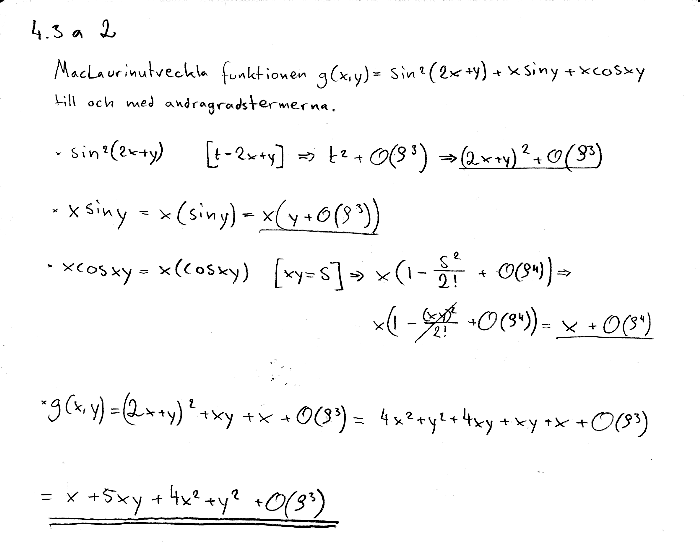 4.3 a 2
MacLaurinutveckla funktionen g(x,y) = sin²(2x+y) + x siny + xcosxy
till och med andragradstermerna.
• sin²(2x+y) [t-2x+y] ⇒ t² + O(ρ³) ⇒ (2x+y)² + O(ρ³)
• x siny = x(siny) = x(y + O(ρ³))
• xcosxy = x(cosxy) [xy=s] ⇒ x(1 - s²/2! + O(ρ⁴)) ⇒
x(1 - (xy)²/2! + O(ρ⁴)) = x + O(ρ⁴)
• g(x,y) = (2x+y)² + xy + x + O(ρ³) = 4x² + y² + 4xy + xy + x + O(ρ³)
= x + 5xy + 4x² + y² + O(ρ³)